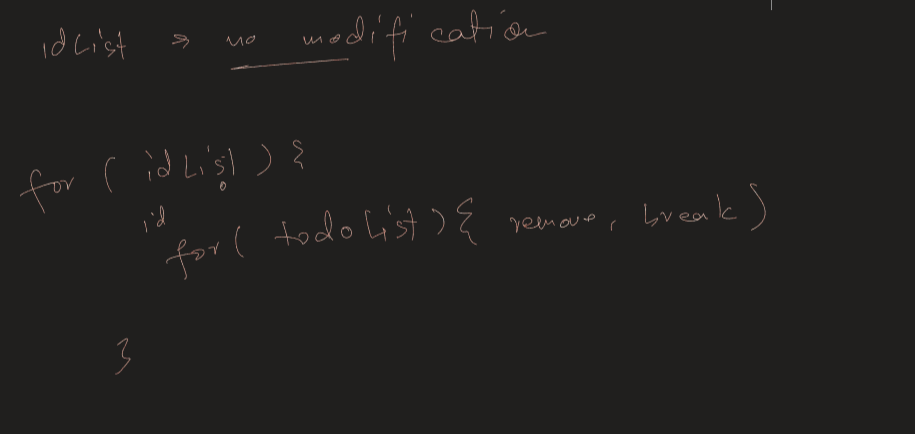 idList ⇒ no modification
for ( idList ) {
id
for ( todoList ) { remove, break )
}